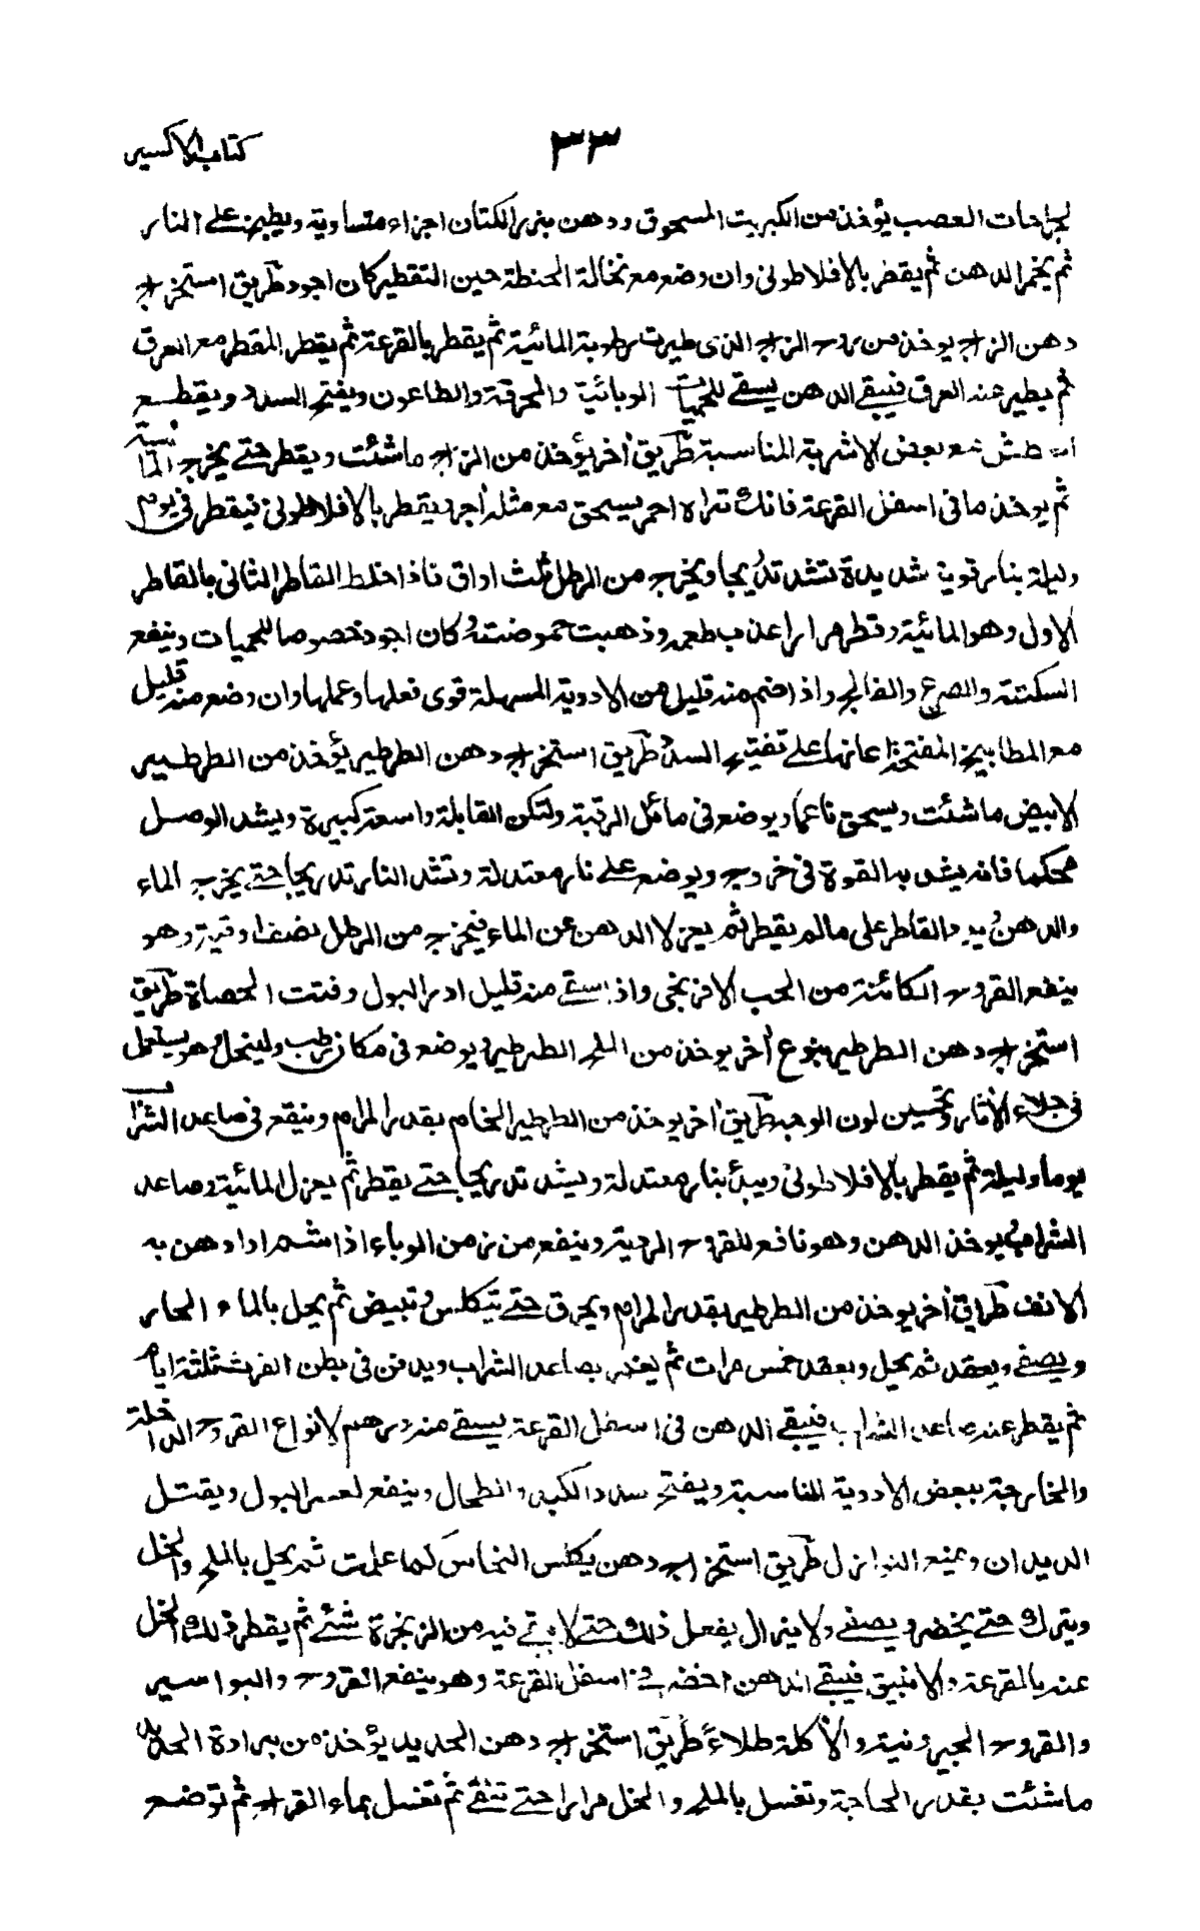 ٣٣ كتاب الاكسير
لجراحات العصب يؤخذ من الكبريت المسحوق ودهن بزر الكتان اجزاء متساوية ويطبخ على النار
ثم يخمر الدهن ثم يقطر بالافلاطونى وان وضع مع نخالة الحنطة حين التقطير كان اجود طريق استخراج
دهن الزاج يوخذ من روح الزاج الذى طيرت رطوبة المائية ثم يقطر بالقرعة ثم يقطر المقطر مع العرق
ثم يطير عنه العرق فيبقى الدهن يسقى للحميات الوبائية والمحرقة والطاعون ويفتح السدد ويقطع
العطش مع بعض الاشربة المناسبة طريق أخر يؤخذ من الزاج ماشئت ويقطر حتى يخرج المائية
ثم يوخذ ما فى اسفل القرعة فانك تراه احمر يسحق مع مثله أجر ويقطر بالافلاطونى فيقطر فى يوم
وليلة بنار قوية شديدة تشد تدريجا ويخرج من الرطل ثلث اواق فاذا خلط القاطر الثانى بالقاطر
الاول وهو المائية وقطر مرارا عذب طعمه وذهبت حموضته وكان اجود خصوصا للحميات وينفع
السكتة والصرع والفالج واذا ضم منه قليل من الادوية المسهلة قوى فعلها وعملها وان وضع منه قليل
مع المطابيخ المفتحة اعانها على تفتيح السدد طريق استخراج دهن الطرطير يؤخذ من الطرطير
الابيض ماشئت ويسحق ناعما ويوضع فى مائل الرقبة ولتكن القابلة واسعة كبيرة ويشد الوصل
محكما فانه يشد به القوة فى خروجه ويوضع على نار معتدلة وتشد النار تدريجا حتى يخرج الماء
والدهن ويرد القاطر على مالم يقطر ثم يعزلا الدهن عن الماء فيخرج من الرطل نصف اوقية وهو
ينفع القروح الكائنة من الحب الافرنجى واذا سقى منه قليل ادر البول وفتت الحصاة طريق
استخراج دهن الطرطير بنوع أخر يوخذ من الملح الطرطير ويوضع فى مكان رطب ولينحل وهو يستعمل
فى جلاء الأثار وتحسين لون الوجه طريق أخر يوخذ من الطرطير الخام بقدر المرام وينقع فى صاعد الشراب
يوما وليلة ثم يقطر بالافلاطونى ويبدأ بنار معتدلة ويشد تدريجا حتى يقطر ثم يعزل المائية وصاعد
الشراب ويوخذ الدهن وهو نافع للقروح الردية وينفع من زمن الوباء اذا شم او ادهن به
الانف طريق أخر يوخذ من الطرطير بقدر المرام ويحرق حتى يتكلس وتبيض ثم يحل بالماء الحار
ويصفى ويعقد ثم يحل ويعقد خمس مرات ثم يغمر بصاعد الشراب ويدفن فى بطن الفرش ثلثة ايام
ثم يقطر عنه صاعد الشراب فيبقى الدهن فى اسفل القرعة يسقى منه درهم لانواع القروح الداخلة
والخارجة ببعض الادوية المناسبة ويفتح سدد الكبد والطحال وينفع لعسر البول ويقتل
الديدان ويمنع النوازل طريق استخراج دهن يكلس النحاس كما علمت ثم يحل بالملح والخل
ويترك حتى يخضر ويصفى ولا يزال يفعل ذلك حتى لا يبقى فيه من الزنجرة شئ ثم يقطر ذلك الخل
عنه بالقرعة والانبيق فيبقى الدهن اخضر فى اسفل القرعة وهو ينفع القروح والبواسير
والقروح الجيرونية والأكلة طلاءً طريق استخراج دهن الحديد يؤخذ من برادة الحديد
ماشئت بقدر الحاجة وتغسل بالملح والخل مرارا حتى تنقى ثم تغسل بماء القراح ثم توضع